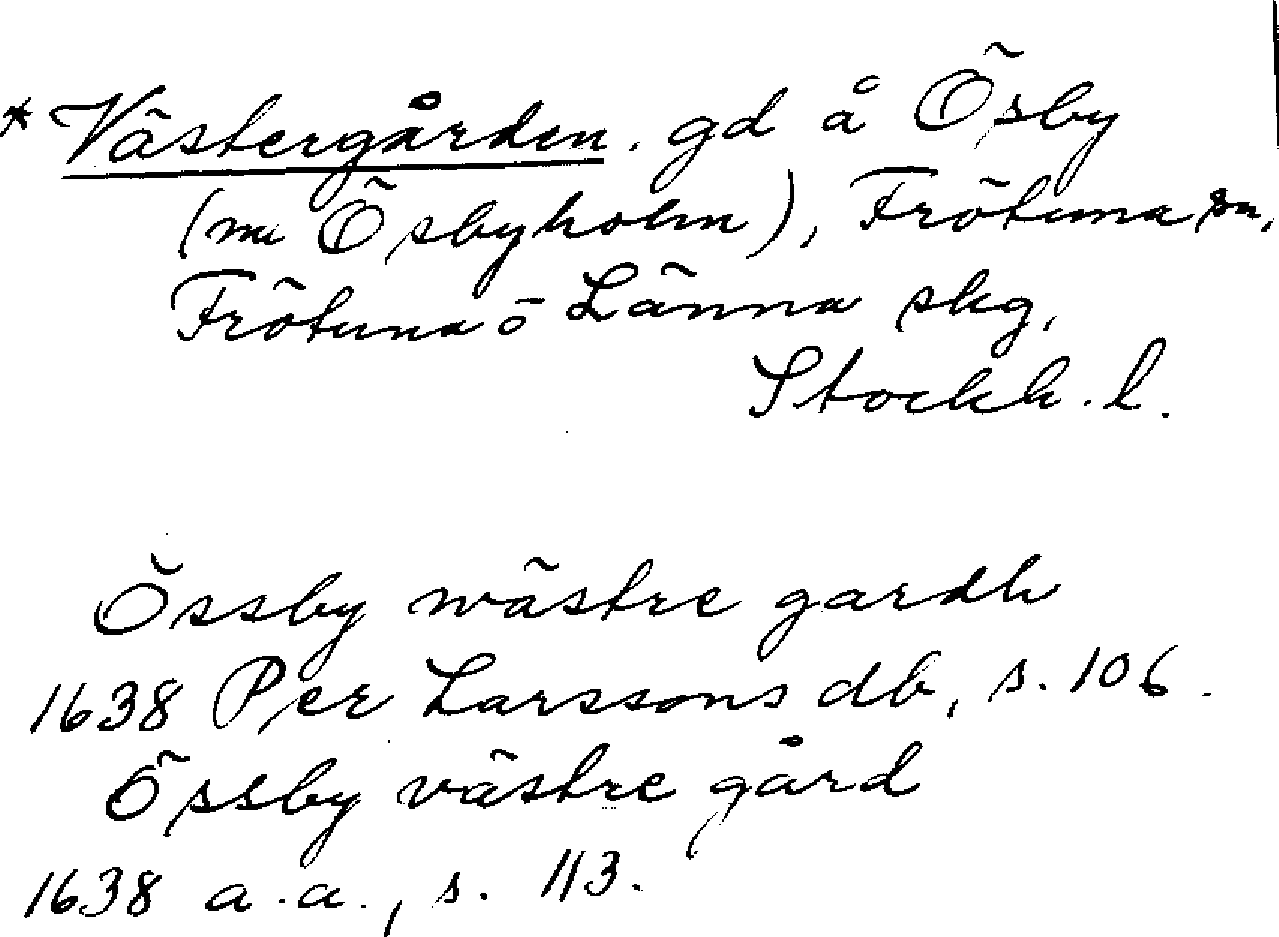 * Västergården. gd å Ösby
(nu Ösbyholm), Frötuna sn,
Frötuna ö Länna skg,
Stockh. l.
Össby wästre gardh
1638 Per Larssons db, s. 106.
Össby västre gård
1638 a.a., s. 113.